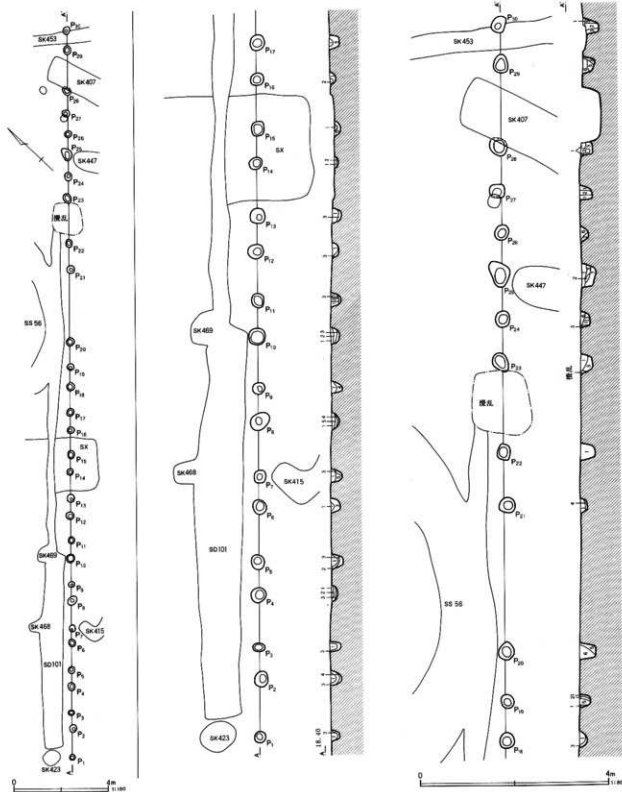 A
P30
SK453
P29
SK407
P28
P27
P26
P25
SK447
P24
P23
攪乱
P22
P21
SS 56
P20
P19
P18
P17
P16
SX
P15
P14
P13
P12
P11
SK469
P10
P9
P8
SK468
P7
SK415
P6
SD101
P5
P4
P3
P2
SK423
P1
A
0 4m
P17
P16
SX
P15
P14
P13
P12
P11
SK469
P10
P9
P8
SK468
P7
SK415
P6
SD101
P5
P4
P3
P2
SK423
P1
A
18.40
A
A
A
P30
SK453
P29
SK407
P28
P27
P26
P25
SK447
P24
P23
攪乱
攪乱
P22
P21
SS 56
P20
P19
P18
0 4m